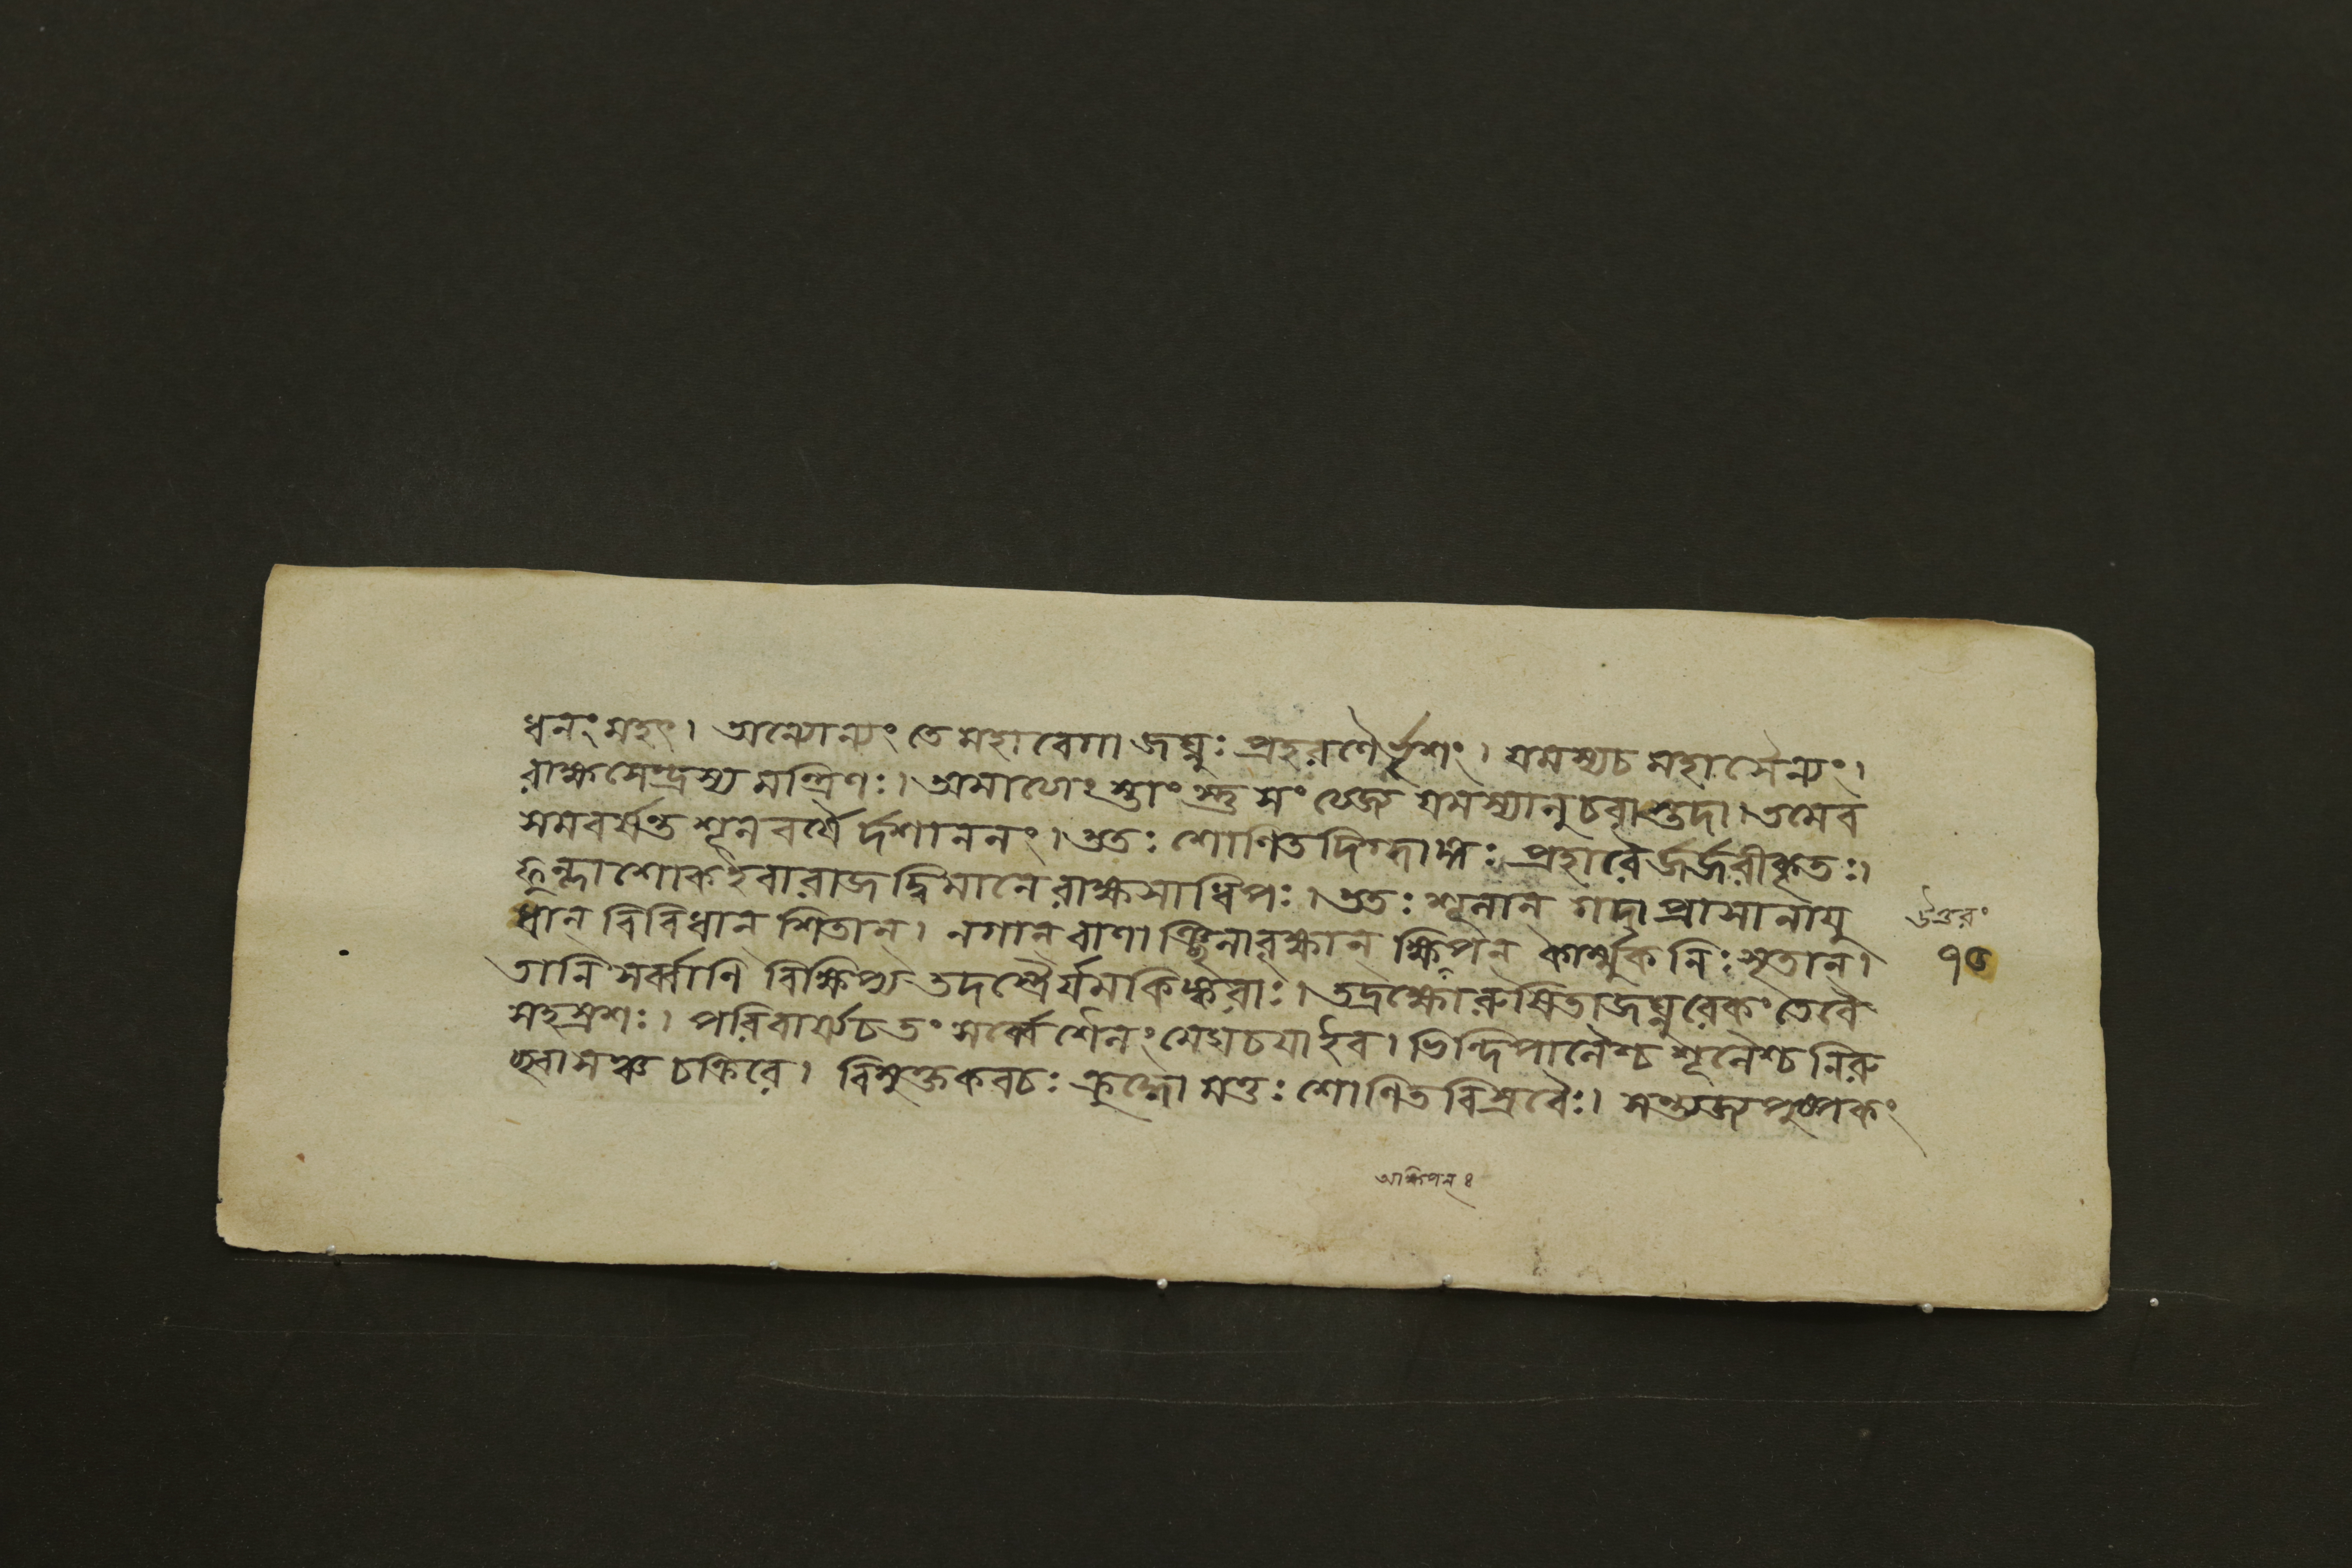 ধনং মহৎ। অন্যোন্যং তে মহাবেগা জঘ্নুঃ প্রহরণৈর্ভৃশং। যমস্য চ মহাসৈন্যং।
রাক্ষসেন্দ্রস্য মন্ত্রিণঃ। অমাত্যেংস্তাংস্তু সংত্যজ্য যমস্যানুচরাস্তদা। তমেব
সমবর্ষন্ত শূলবর্ষৈর্দশাননং। ততঃ শোণিতদিগ্ধাঙ্গঃ প্রহারৈর্জর্জরীকৃতঃ।
ফুল্লাশোক ইবারাজদ্বিমানে রাক্ষসাধিপঃ। ততঃ শূলান গদা প্রাসানায়ু
ধান্ বিবিধান শিতান্। নগান বাণাঞ্ছিলাবৃক্ষান ক্ষিপন কার্ম্মুকনিঃসৃতান্।
তানি সর্ব্বাণি বিক্ষিপ্য তদস্ত্রৈর্যমকিঙ্করাঃ। তদ্রক্ষো রুষিতা জঘ্নুরেকং তে বৈ
সহস্রশঃ। পরিবার্য্য চ তং সর্ব্বে শৈলং মেঘচয়া ইব। ভিন্দিপালৈশ্চ শূলৈশ্চ নিরু
চ্ছ্বাসঞ্চ চক্রিরে। বিমুক্তকবচঃ ক্রুদ্ধো মত্তঃ শোণিতবিস্রবৈঃ। সন্ত্যজ্য পুষ্পকং
উত্তরং
৭৫
আক্ষিপন্ ৪